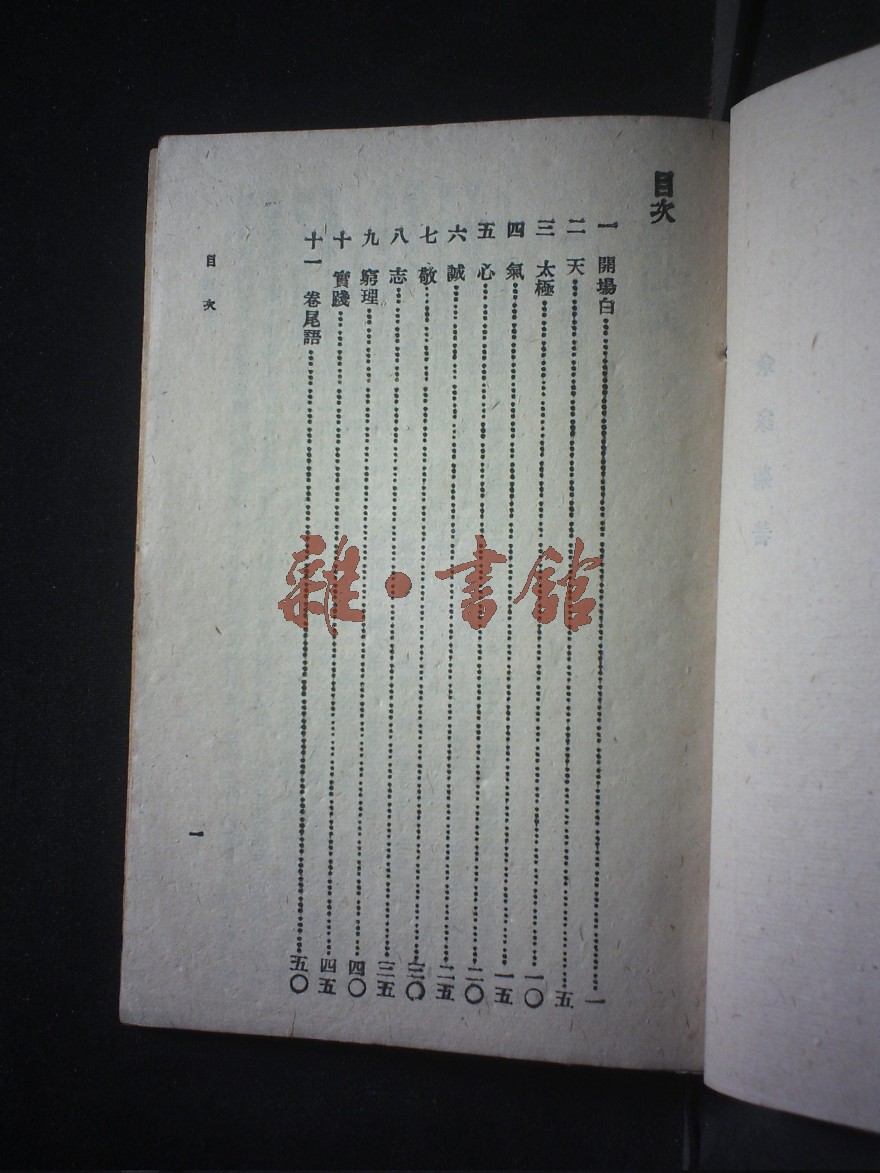 目次
一　開場白……一
二　天……五
三　太極……一〇
四　氣……一五
五　心……二〇
六　誠……二五
七　敬……三〇
八　志……三五
九　窮理……四〇
十　實踐……四五
十一　卷尾語……五〇
目次
一
雜·書館